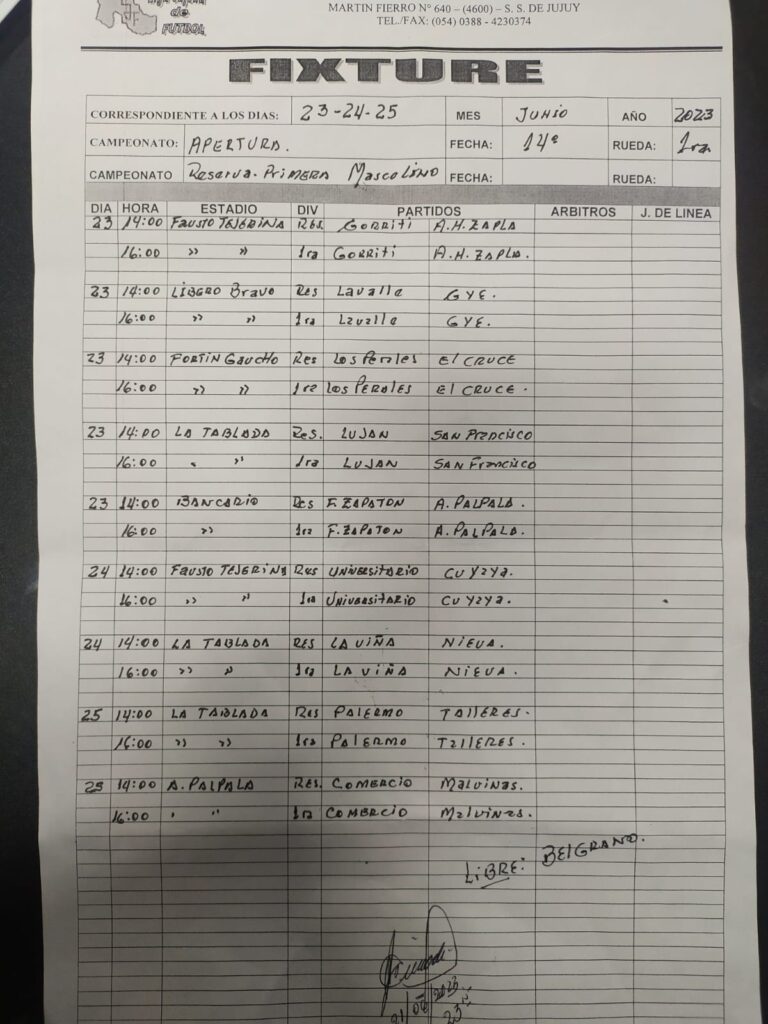 de
FUTBOL
MARTIN FIERRO N° 640 – (4600) – S. S. DE JUJUY
TEL./FAX: (054) 0388 - 4230374
FIXTURE
CORRESPONDIENTE A LOS DIAS: 23-24-25 MES JUNIO AÑO 2023
CAMPEONATO: APERTURA. FECHA: 14ª RUEDA: 1ra
CAMPEONATO Reserva-Primera Mascolino FECHA: RUEDA:
DIA HORA ESTADIO DIV PARTIDOS ARBITROS J. DE LINEA
23 14:00 FAUSTO TEJERINA Res. GORRITI A.H. ZAPLA
16:00 " " 1ra GORRITI A.H. ZAPLA.
23 14:00 LIBERO Bravo Res Lavalle GYE.
16:00 " " 1ra Lavalle GYE.
23 14:00 FORTIN GAUCHO Res Los Perales El CRUCE
16:00 " " 1ra Los PERALES El CRUCE.
23 14:00 LA TABLADA Res. LUJAN SAN FRANCISCO
16:00 " " 1ra LUJAN SAN FRANCISCO
23 14:00 BANCARIO Res F. ZAPATON A. PALPALA.
16:00 " 1ra F. ZAPATON A. PALPALA.
24 14:00 FAUSTO TEJERINA Res UNIVERSITARIO CUYAYA.
16:00 " " 1ra UNIVERSITARIO CUYAYA.
24 14:00 LA TABLADA RES LA VIÑA NIEVA.
16:00 " " 1ra LA VIÑA NIEVA.
25 14:00 LA TABLADA Res PALERMO TALLERES.
16:00 " " 1ra PALERMO TALLERES.
25 14:00 A. PALPALA RES. COMERCIO Malvinas.
16:00 " " 1ra COMERCIO Malvinas.
LIBRE: BELGRANO.
21/06/2023